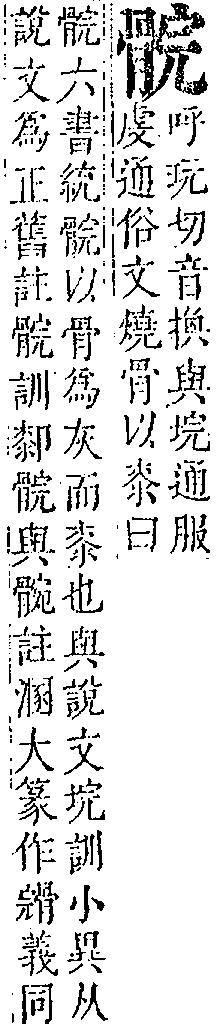 䯘
呼玩切音換與垸通服
虔通俗文燒骨以桼曰
䯘六書統䯘以骨爲灰而桼也與說文垸訓小異从
說文爲正舊註䯘訓䣛䯘與䯛註溷大篆作𩩂義同